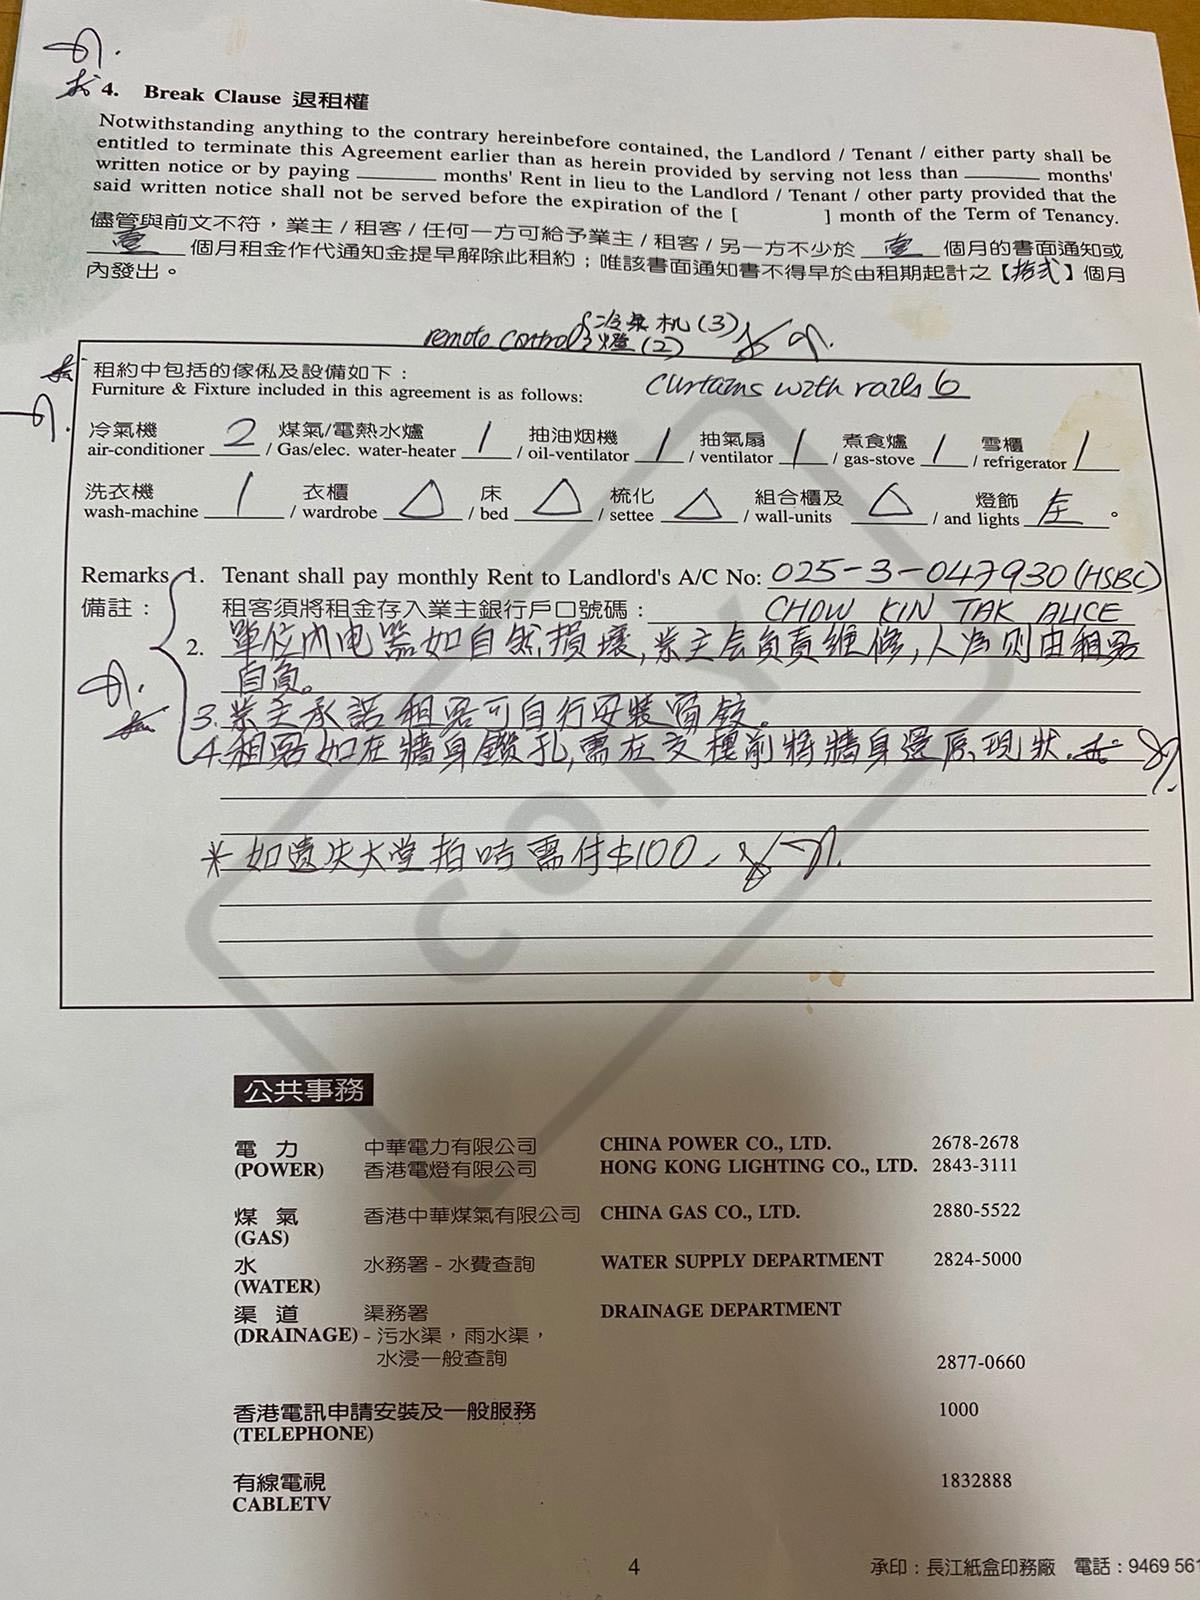 4. Break Clause 退租權
Notwithstanding anything to the contrary hereinbefore contained, the Landlord / Tenant / either party shall be
entitled to terminate this Agreement earlier than as herein provided by serving not less than ________ months'
written notice or by paying ________ months' Rent in lieu to the Landlord / Tenant / other party provided that the
said written notice shall not be served before the expiration of the [ ] month of the Term of Tenancy.
儘管與前文不符，業主 / 租客 / 任何一方可給予業主 / 租客 / 另一方不少於 壹 個月的書面通知或
壹 個月租金作代通知金提早解除此租約；唯該書面通知書不得早於由租期起計之【拾弍】個月
內發出。
remote control { 冷氣机 (3)
燈 (2)
租約中包括的傢俬及設備如下：
Furniture & Fixture included in this agreement is as follows:
curtains with rails 6
冷氣機 煤氣/電熱水爐 抽油烟機 抽氣扇 煮食爐 雪櫃
air-conditioner 2 / Gas/elec. water-heater 1 / oil-ventilator 1 / ventilator 1 / gas-stove 1 / refrigerator 1
洗衣機 衣櫃 床 梳化 組合櫃及 燈飾
wash-machine 1 / wardrobe △ / bed △ / settee △ / wall-units △ / and lights 。
Remarks 1. Tenant shall pay monthly Rent to Landlord's A/C No: 025-3-047930 (HSBC)
備註： 租客須將租金存入業主銀行戶口號碼： CHOW KIN TAK ALICE
2. 單位內电器如自然損壞,業主会負責維修,人為则由租客
自負。
3. 業主承諾租客可自行安裝窗鉸。
4. 租客如在牆身鑽孔,需在交樓前將牆身還原現狀.
* 如遺失大堂拍咭需付$100
COPY
公共事務
電 力 中華電力有限公司 CHINA POWER CO., LTD. 2678-2678
(POWER) 香港電燈有限公司 HONG KONG LIGHTING CO., LTD. 2843-3111
煤 氣 香港中華煤氣有限公司 CHINA GAS CO., LTD. 2880-5522
(GAS)
水 水務署 - 水費查詢 WATER SUPPLY DEPARTMENT 2824-5000
(WATER)
渠 道 渠務署 DRAINAGE DEPARTMENT
(DRAINAGE) - 污水渠，雨水渠，
水浸一般查詢 2877-0660
香港電訊申請安裝及一般服務 1000
(TELEPHONE)
有線電視 1832888
CABLETV
4
承印：長江紙盒印務廠 電話：9469 561